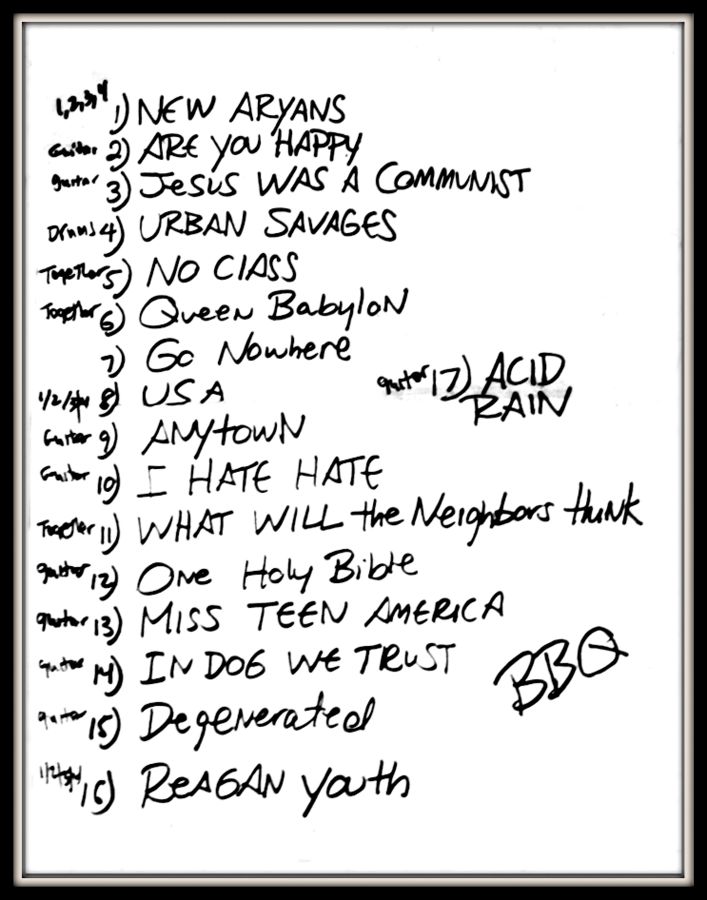 1,2,3,4 1) NEW ARYANS
Guitar 2) ARE YOU HAPPY
guitar 3) JESUS WAS A COMMUNIST
Drums 4) URBAN SAVAGES
Together 5) NO ClASS
Together 6) Queen BabyloN
7) Go Nowhere
1/2/3/4 8) USA
guitar 17) ACID
RAIN
Guitar 9) ANYtOWN
Guitar 10) I HATE HATE
Together 11) WHAT WILL the Neighbors thiNK
guitar 12) ONe Holy Bible
guitar 13) MISS TEEN AMERICA
guitar 14) IN DOG WE TRUST
BBQ
guitar 15) Degenerated
1/2/3/4 16) ReAGAN youth